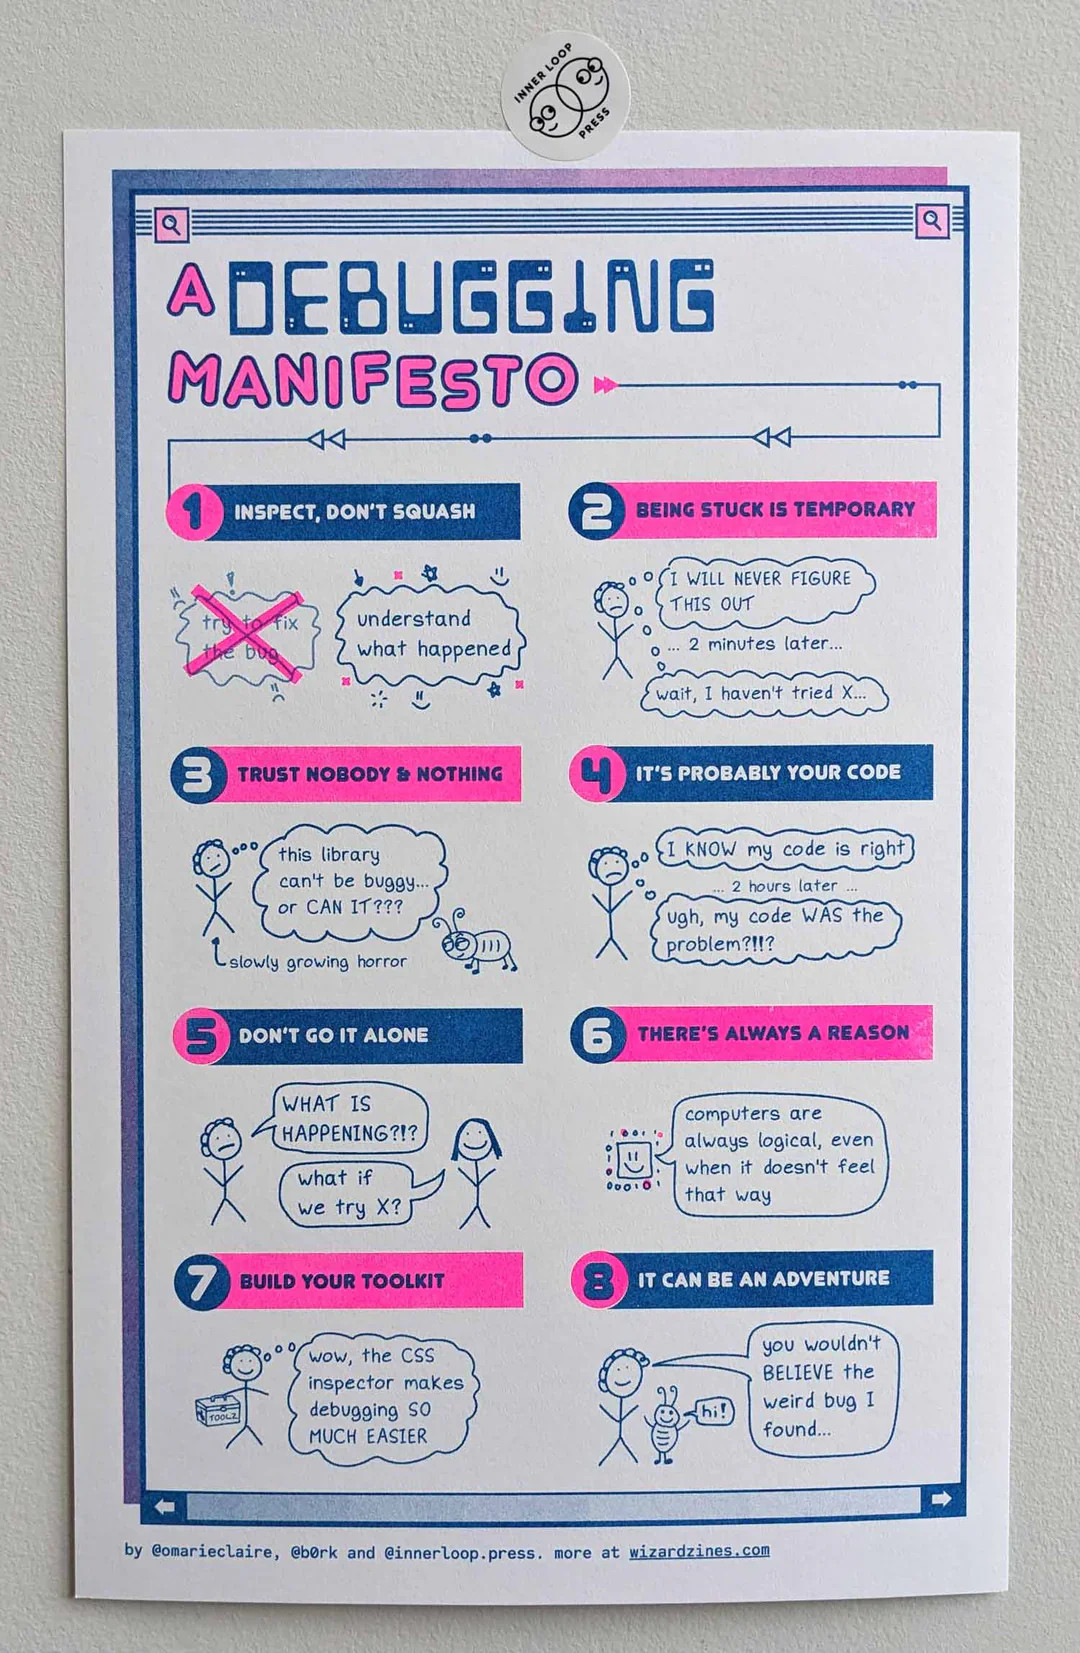 INNER LOOP
PRESS
A DEBUGGING
MANIFESTO
1 INSPECT, DON'T SQUASH
try to fix
the bug
understand
what happened
2 BEING STUCK IS TEMPORARY
I WILL NEVER FIGURE
THIS OUT
... 2 minutes later...
wait, I haven't tried X...
3 TRUST NOBODY & NOTHING
this library
can't be buggy...
or CAN IT???
slowly growing horror
4 IT'S PROBABLY YOUR CODE
I KNOW my code is right
... 2 hours later ...
ugh, my code WAS the
problem?!!?
5 DON'T GO IT ALONE
WHAT IS
HAPPENING?!?
what if
we try X?
6 THERE'S ALWAYS A REASON
computers are
always logical, even
when it doesn't feel
that way
7 BUILD YOUR TOOLKIT
wow, the CSS
inspector makes
debugging SO
MUCH EASIER
TOOLZ
8 IT CAN BE AN ADVENTURE
you wouldn't
BELIEVE the
weird bug I
found...
hi!
by @omarieclaire, @b0rk and @innerloop.press. more at wizardzines.com